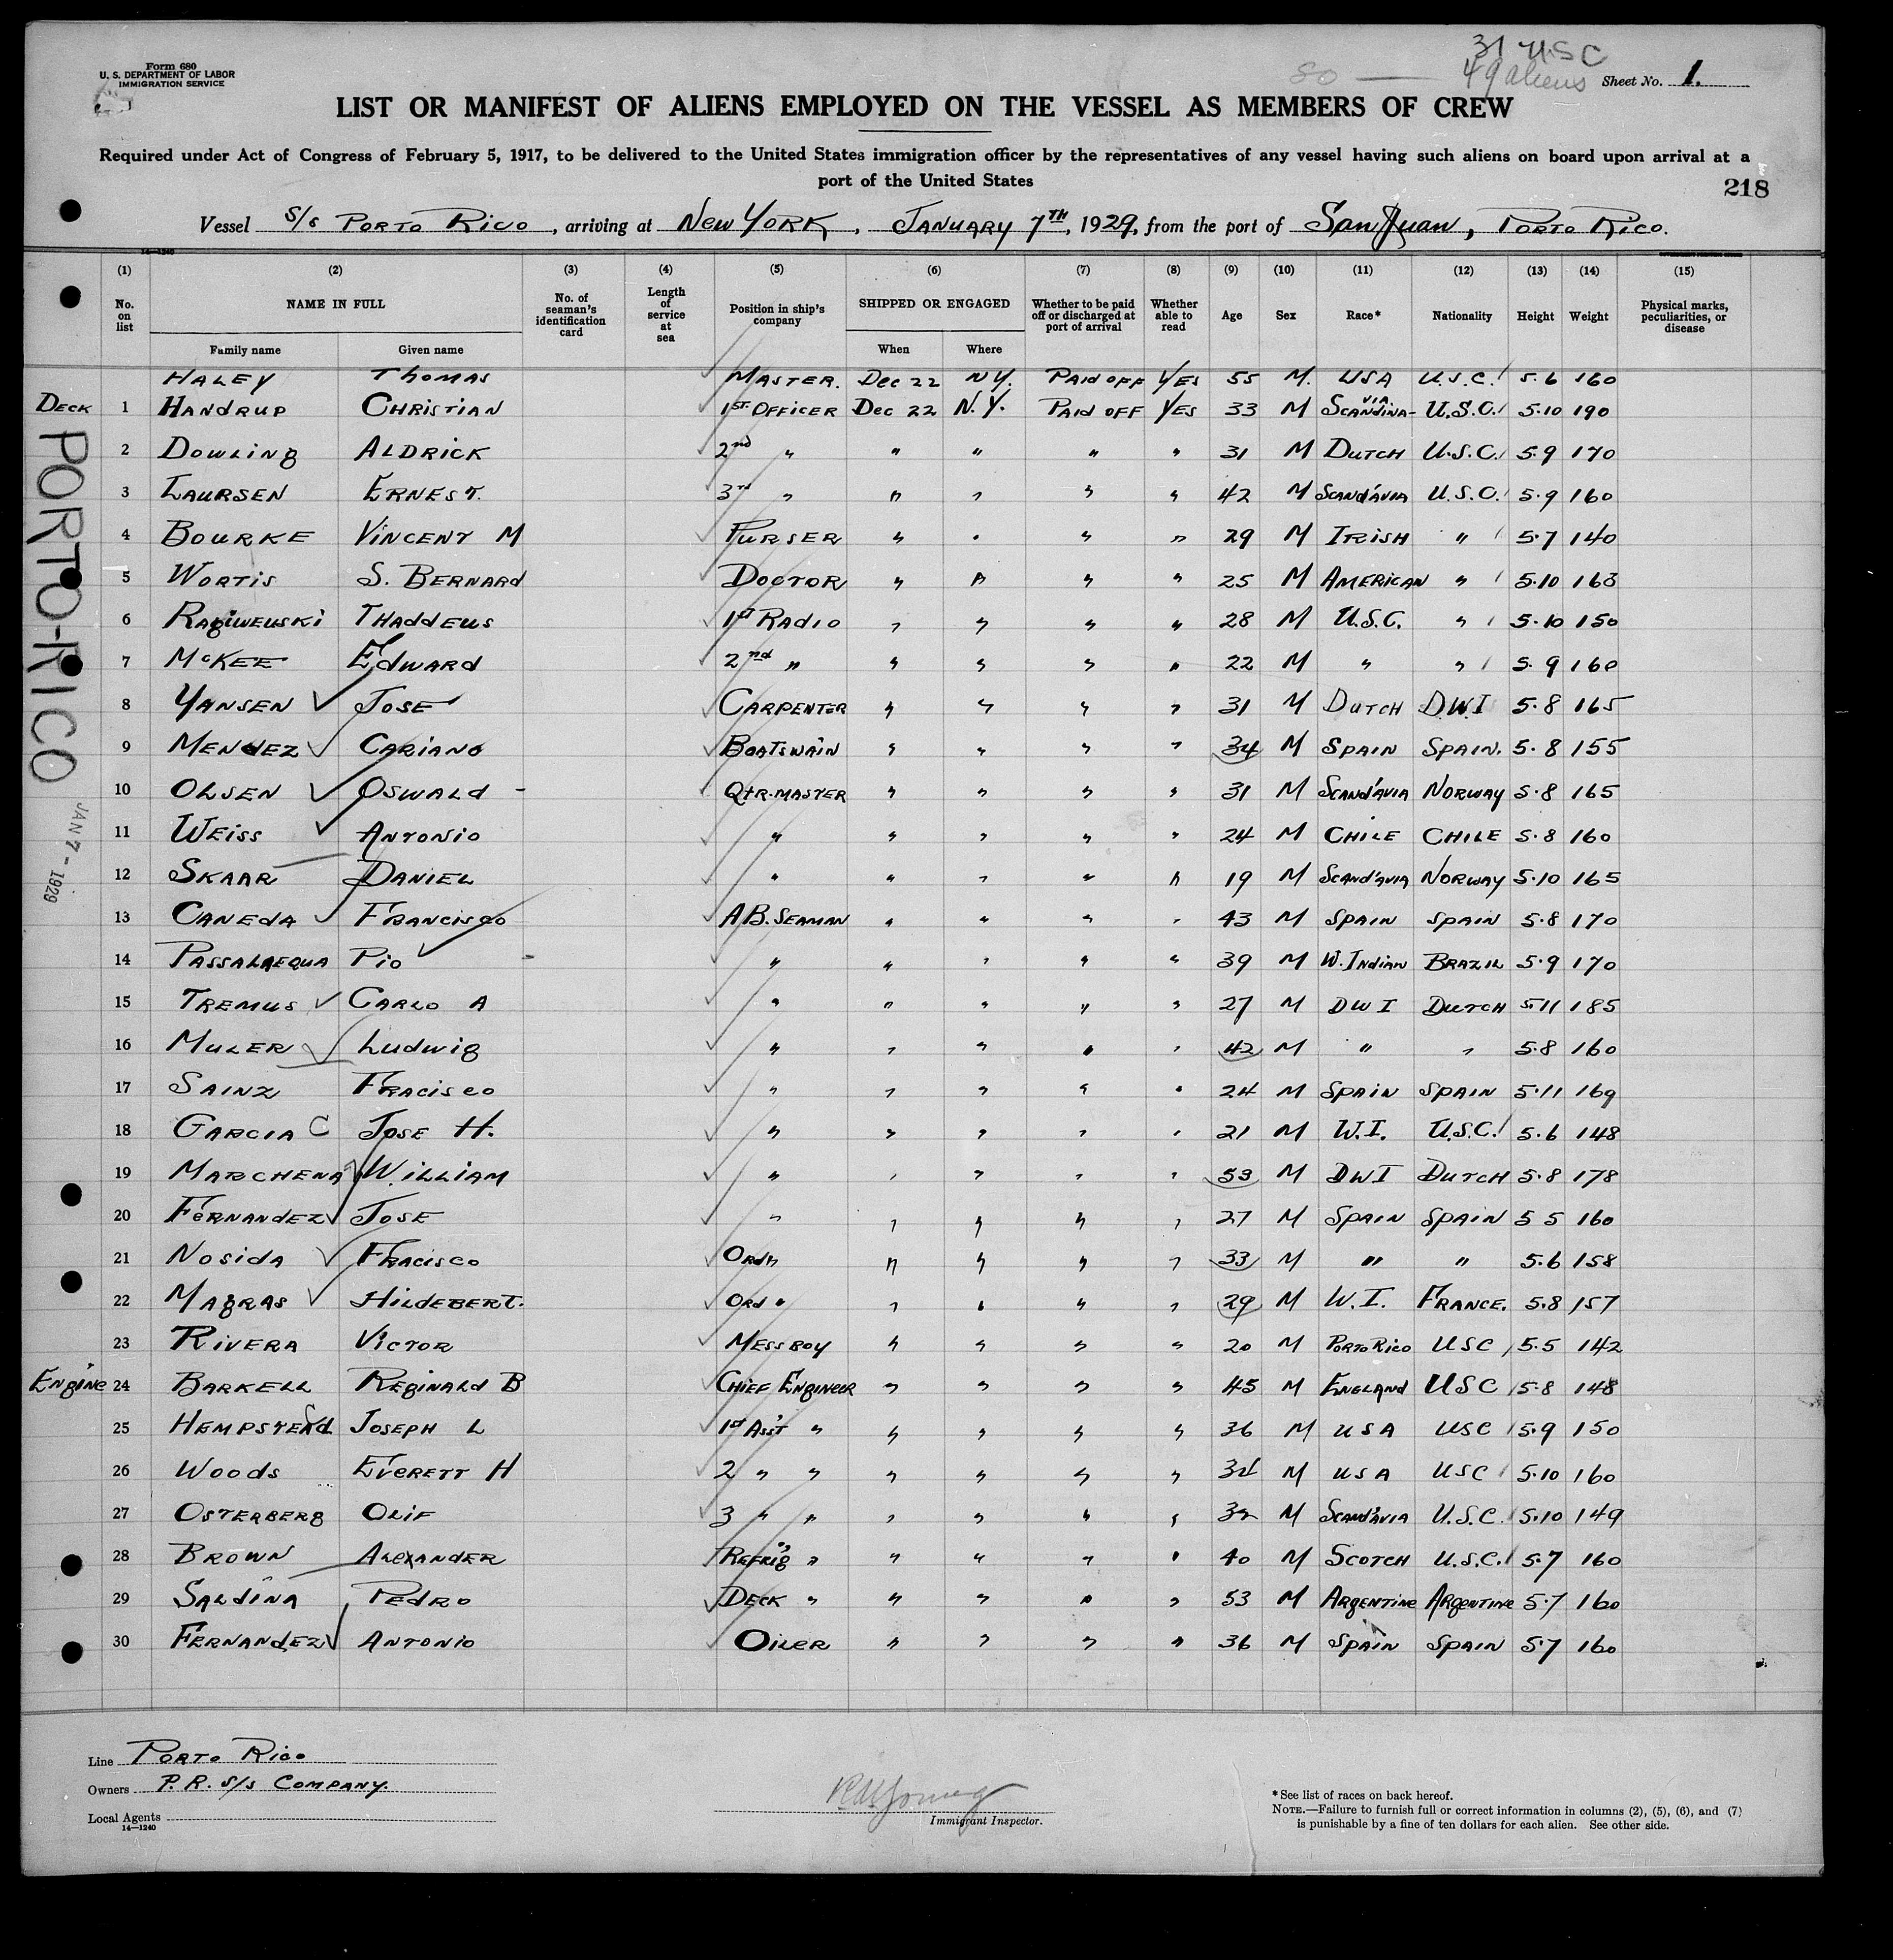 Form 680
U. S. DEPARTMENT OF LABOR
IMMIGRATION SERVICE
31 U.S.C
80 — 49 aliens Sheet No. 1.
LIST OR MANIFEST OF ALIENS EMPLOYED ON THE VESSEL AS MEMBERS OF CREW
Required under Act of Congress of February 5, 1917, to be delivered to the United States immigration officer by the representatives of any vessel having such aliens on board upon arrival at a
port of the United States
218
Vessel S/s PORTO RICO, arriving at NEW YORK, JANUARY 7TH, 1929, from the port of San Juan, PORTO RICO.
14—1240
(1) (2) (3) (4) (5) (6) (7) (8) (9) (10) (11) (12) (13) (14) (15)
No. on list NAME IN FULL No. of seaman's identification card Length of service at sea Position in ship's company SHIPPED OR ENGAGED Whether to be paid off or discharged at port of arrival Whether able to read Age Sex Race* Nationality Height Weight Physical marks, peculiarities, or disease
Family name Given name When Where
HALEY THOMAS MASTER. Dec 22 NY. PAID OFF YES 55 M. USA U.S.C. 5.6 160
DECK 1 HANDRUP CHRISTIAN 1ST. OFFICER Dec 22 N.Y. PAID OFF YES 33 M SCANDINA-VIA U.S.C. 5.10 190
2 DOWLING ALDRICK 2nd " " " " " 31 M DUTCH U.S.C. 5.9 170
3 LAURSEN ERNEST. 3rd " " " " " 42 M SCAND'AVIA U.S.C. 5.9 160
4 BOURKE VINCENT M PURSER " " " " 29 M IRISH " 5.7 140
5 WORTIS S. BERNARD DOCTOR " " " " 25 M AMERICAN " 5.10 163
6 THADDEUS 1st RADIO " " " " 28 M U.S.C. " 5.10 150
7 McKEE EDWARD 2nd " " " " " 22 M " " 5.9 160
8 YANSEN JOSE CARPENTER " " " " 31 M DUTCH D.W.I 5.8 165
9 MENDEZ CARIANO BOATSWAIN " " " " 34 M SPAIN SPAIN. 5.8 155
10 OLSEN OSWALD - QTR.MASTER " " " " 31 M SCAND'AVIA NORWAY 5.8 165
11 WEISS ANTONIO " " " " " 24 M CHILE CHILE 5.8 160
12 SKAAR DANIEL " " " " " 19 M SCAND'AVIA NORWAY 5.10 165
13 CANEDA FRANCISCO A.B. SEAMAN " " " " 43 M SPAIN SPAIN 5.8 170
14 PIO - " " " " " 39 M W. INDIAN BRAZIL 5.9 170
15 TREMUS CARLO A " " " " " 27 M DWI DUTCH 5.11 185
16 MULER LUDWIG " " " " " 42 M " " 5.8 160
17 SAINZ FRACISCO " " " " " 24 M SPAIN SPAIN 5.11 169
18 GARCIA C JOSE H. " " " " " 21 M W.I. U.S.C. 5.6 148
19 MARCHENA WILLIAM " " " " " 53 M DWI DUTCH 5.8 178
20 FERNANDEZ JOSE " " " " " 27 M SPAIN SPAIN 5 5 160
21 NOSIDA FRACISCO ORD " " " " " 33 M " " 5.6 158
22 MAGRAS HILDEBERT. ORD " " " " " 29 M W.I. FRANCE. 5.8 157
23 RIVERA VICTOR MESSBOY " " " " 20 M PORTO RICO USC 5.5 142
ENGINE 24 BARKELL REGINALD B CHIEF ENGINEER " " " " 45 M ENGLAND USC 5.8 148
25 HEMPSTEAD JOSEPH L 1st ASS'T " " " " " 36 M USA USC 5.9 150
26 WOODS EVERETT H 2 " " " " " " M USA USC 5.10 160
27 OSTERBERG OLIF 3 " " " " " " M SCAND'AVIA U.S.C. 5.10 149
28 BROWN ALEXANDER REFRIG " " " " " 40 M SCOTCH U.S.C. 5.7 160
29 SALDINA PEDRO DECK " " " " " 53 M ARGENTINE ARGENTINE 5.7 160
30 FERNANDEZ ANTONIO OILER " " " " 36 M SPAIN SPAIN 5.7 160
PORTO-RICO
JAN 7 - 1929
Line PORTO RICO
Owners P.R. S/S COMPANY.
Local Agents
14—1240
Immigrant Inspector.
* See list of races on back hereof.
NOTE.—Failure to furnish full or correct information in columns (2), (5), (6), and (7)
is punishable by a fine of ten dollars for each alien. See other side.